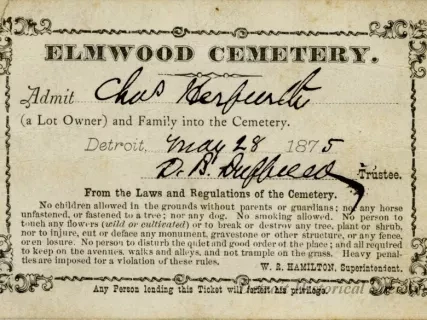 ELMWOOD CEMETERY.
Admit Chas Herfurth
(a Lot Owner) and Family into the Cemetery.
Detroit, May 28 1875
D. B. Duffield Trustee.
From the Laws and Regulations of the Cemetery.
No children allowed in the grounds without parents or guardians; nor any horse
unfastened, or fastened to a tree; nor any dog. No smoking allowed. No person to
touch any flowers (wild or cultivated) or to break or destroy any tree, plant or shrub,
nor to injure, cut or deface any monument, gravestone or other structure, or any fence,
or enclosure. No person to disturb the quiet and good order of the place; and all required
to keep on the avenues, walks and alleys, and not trample on the grass. Heavy penal-
ties are imposed for a violation of these rules.
W. R. HAMILTON, Superintendent.
Any Person lending this Ticket will forfeit his privilege.
Historical